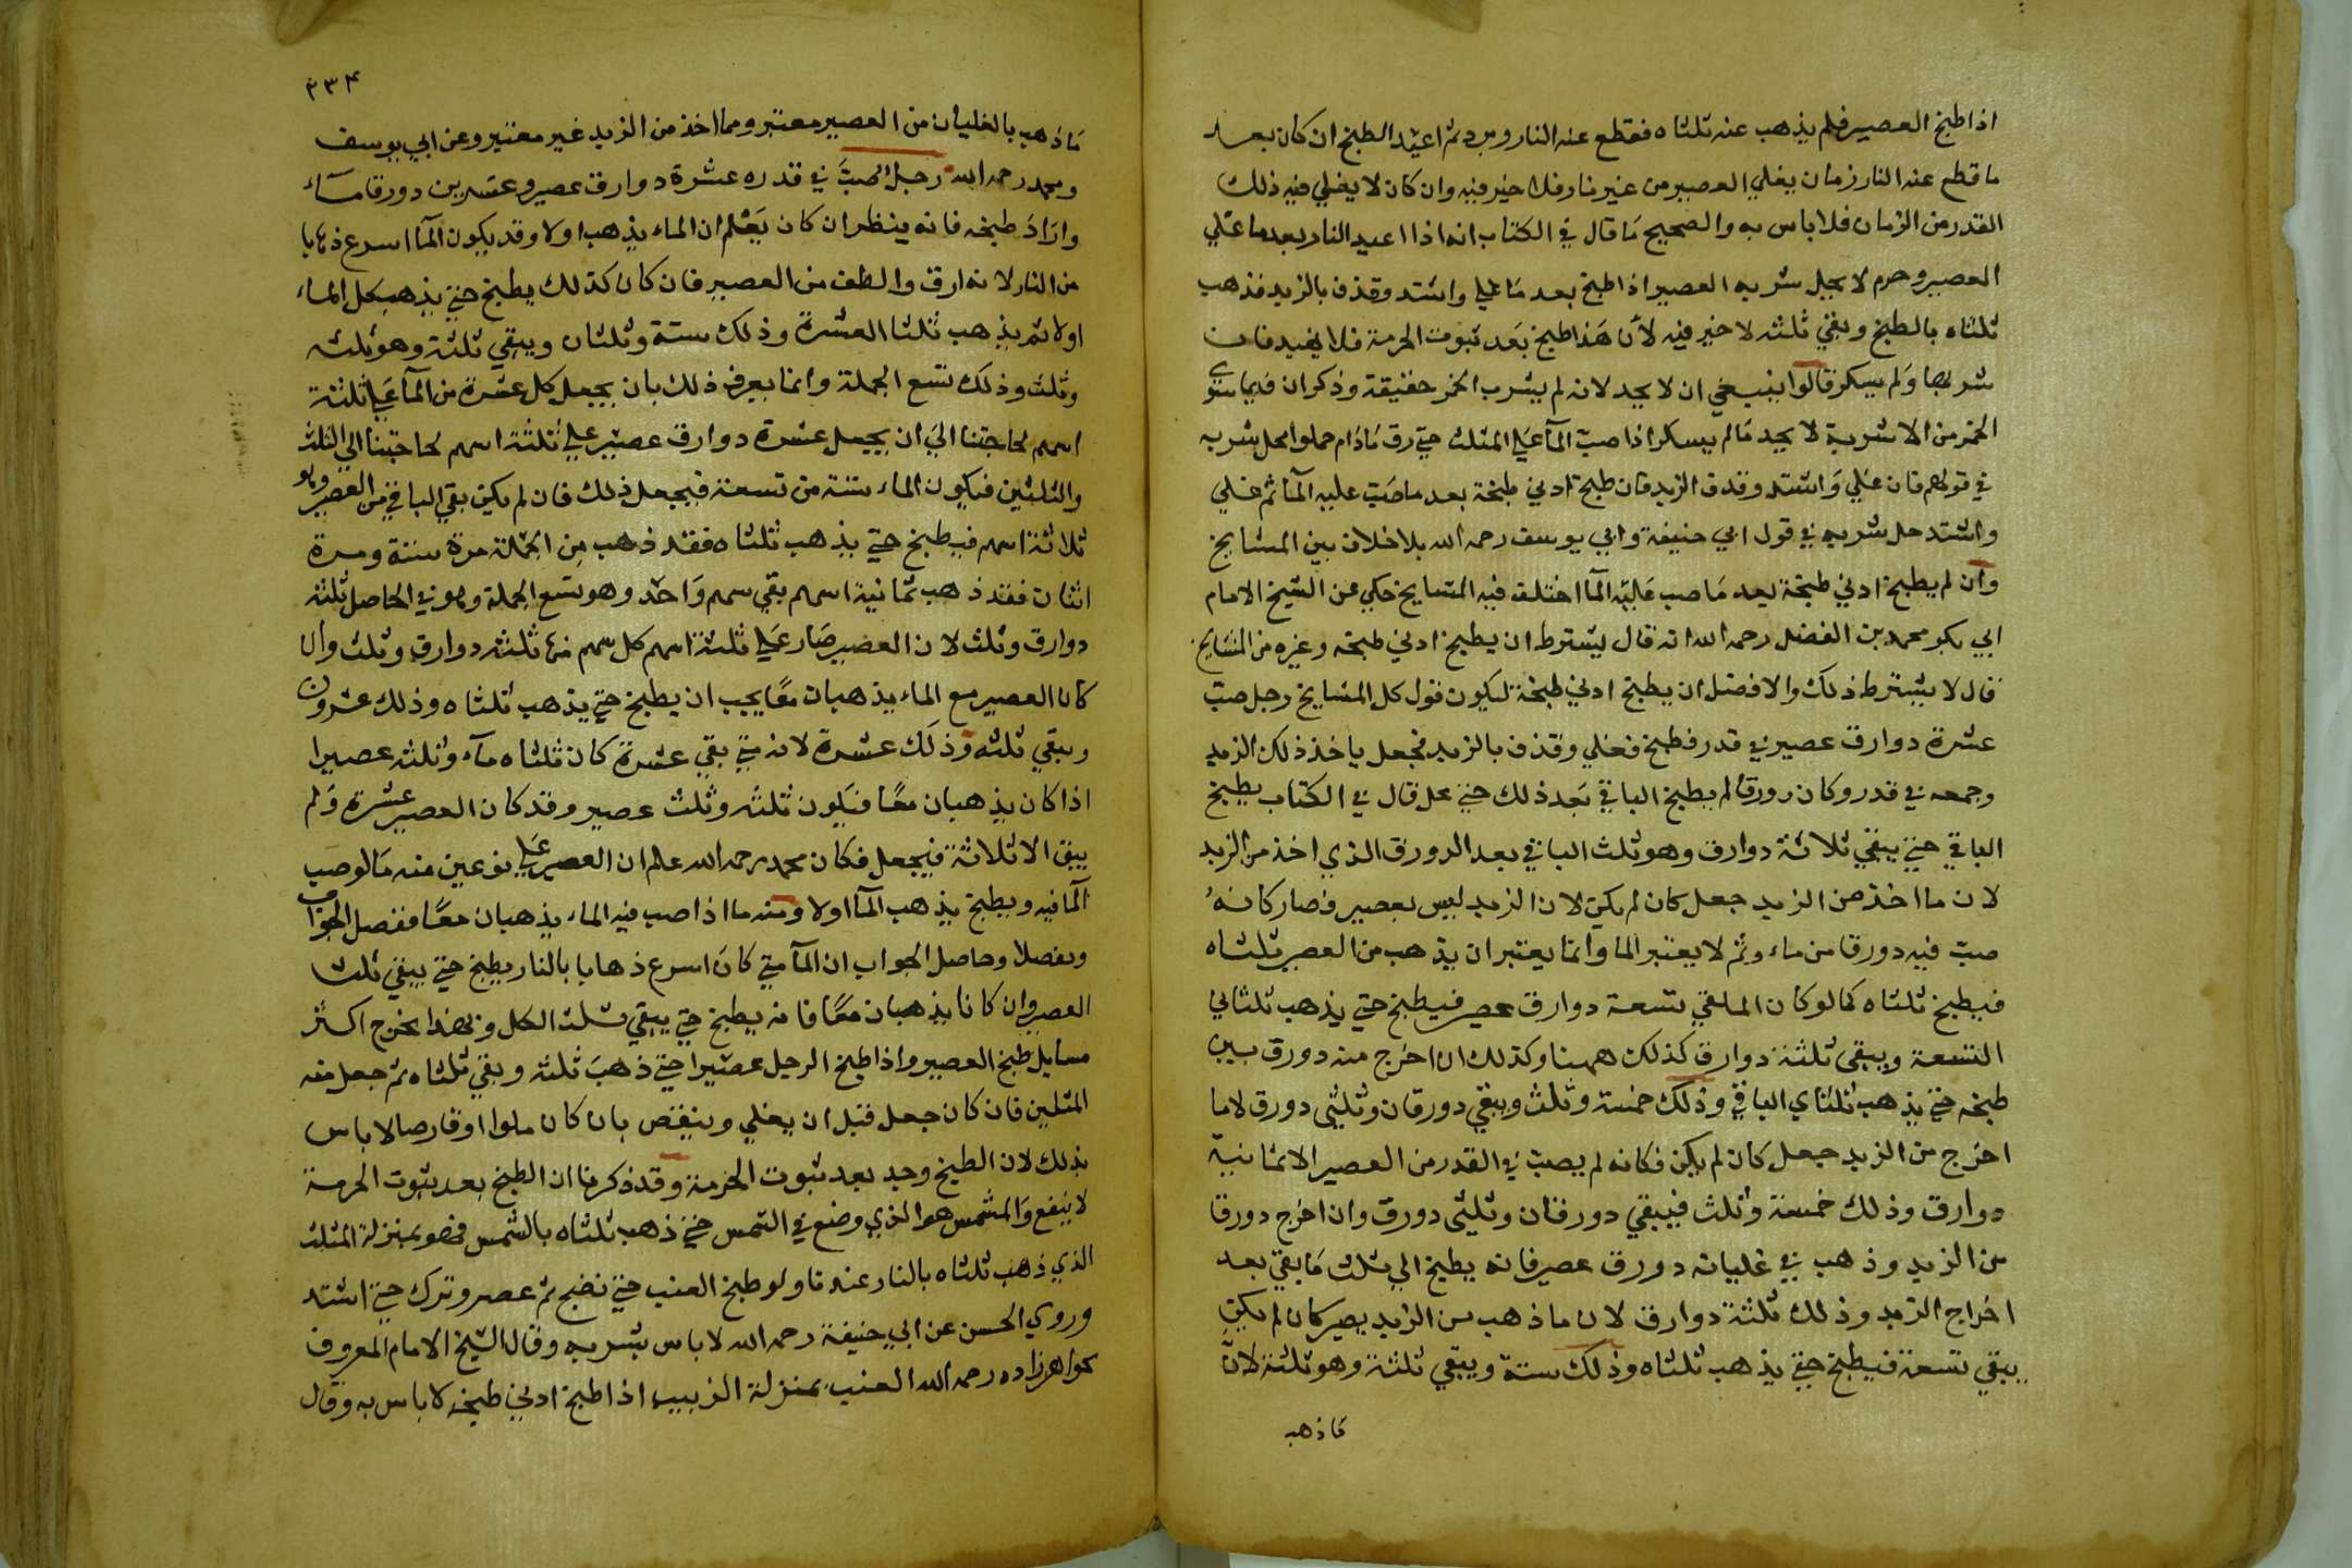 اذا طبخ العصير فلم يذهب عنه ثلثاه فقطع عنه النار وبرد ثم اعيد الطبخ ان كان بعد
ما قطع عنه النار زمان يغلي العصير من غير نار فلا خير فيه وان كان لا يغلي فيه ذلك
القدر من الزمان فلا باس به والصحيح ما قال في الكتاب انه اذا اعيد النار بعد ما غلي
العصير وحرم لا يحل شربه العصير اذا طبخ بعد ما غلي واشتد وقذف بالزبد فذهب
ثلثاه بالطبخ وبقي ثلثه لا خير فيه لأن هذا طبخ بعد ثبوت الحرمة فلا يفيد فان
شربها ولم يسكر قالوا ينبغي ان لا يحد لانه لم يشرب الخمر حقيقة وذكر ان فيما سوي
الخمر من الاشربة لا يحد ما لم يسكر اذا صب المآ علي المثلث حتي رق ما دام حلوا يحل شربه
في قولهم فان غلي واشتد وقذف الزبد فان طبخ ادني طبخة بعد ما صب عليه المآ ثم غلي
واشتد حل شربه في قول ابي حنيفة وابي يوسف رحمه الله بلا خلاف بين المشايخ
وان لم يطبخ ادني طبخة بعد ما صب عليه المآ اختلف فيه المشايخ حكي عن الشيخ الامام
ابي بكر محمد بن الفضل رحمه الله انه قال يشترط ان يطبخ ادني طبخه وغيره من المشايخ
قال لا يشترط ذلك والافضل ان يطبخ ادني طبخة ليكون قول كل المشايخ رجل صب
عشرة دوارق عصير في قدر فطبخ فغلي وقذف بالزبد فجعل ياخذ ذلك الزبد
وجمعه في قدر وكان دورقا لم يطبخ الباقي بعد ذلك حتي حل قال في الكتاب يطبخ
الباقي حتي يبقي ثلاثة دوارق وهو ثلث الباقي بعد الدورق الذي اخذ من الزبد
لان ما اخذ من الزبد جعل كان لم يكن لان الزبد ليس بعصير فصار كانه
صب فيه دورقا من ماء وثم لا يعتبر الما وانما يعتبر ان يذهب من العصير ثلثاه
فيطبخ ثلثاه كما لو كان الملقي تسعة دوارق عصير فيطبخ حتي يذهب ثلثا
التسعة ويبقي ثلثة دوارق كذلك ههنا وكذلك ان اخرج منه دورق بين
طبخه حتي يذهب ثلثاي الباقي وذلك خمسة وثلث وبقي دورقان وثلثي دورق لاما
اخرج من الزبد جعل كان لم يكن فكانه لم يصب في القدر من العصير الا ثمانية
دوارق وذلك خمسة وثلث فيبقي دورقان وثلثي دورق وان اخرج دورقا
من الزبد وذهب في غليانه دورق عصير فانه يطبخ الي ثلث ما بقي بعد
اخراج الزبد وذلك ثلثة دوارق لان ما ذهب من الزبد يصير كان لم يكن
يبقي تسعة فيطبخ حتي يذهب ثلثاه وذلك ستة ويبقي ثلثة وهو ثلثة لان
ما ذهب
٢٣٤
ما ذهب بالغليان من العصير معتبر ومما اخذ من الزبد غير معتبر وعن ابي يوسف
ومحمد رحمه الله رجل صب في قدره عشرة دوارق عصير وعشرين دورقا ماء
واراد طبخه فانه ينظر ان كان يعلم ان الماء يذهب اولا وقد يكون المآ اسرع ذهابا
من النار لانه ارق والطف من العصير فان كان كذلك يطبخ حتي يذهب كل الماء
اولا ثم يذهب ثلثا العشرة وذلك ستة وثلثان ويبقي ثلثة وهو ثلثه
وثلث وذلك تسع الجملة وانما يعرف ذلك بان يجعل كل عشرة من المآ علي ثلثة
اسهم لحاجتنا الي ان يجعل عشرة دوارق عصير علي ثلثة اسهم لحاجتنا الي الثلث
والثلثين فيكون الماء ستة من تسعة فيجعل ذلك فان لم يكن بقي الباقي من العصير وهو
ثلاثة اسهم فيطبخ حتي يذهب ثلثاه فقد ذهب من الجملة مرة ستة ومرة
اثنان فقد ذهب ثمانية اسهم بقي سهم واحد وهو تسع الجملة وهو في الحاصل ثلثة
دوارق وثلث لان العصير صار علي ثلثة اسهم كل سهم منها ثلثه دوارق وثلث وان
كان العصير مع الماء يذهبان معا يجب ان يطبخ حتي يذهب ثلثاه وذلك عشرون
وبقي ثلثه وذلك عشرة لانه متي بقي عشرة كان ثلثاه مآء وثلثه عصيرا
اذا كان يذهبان معا فيكون ثلثه وثلث عصير وقد كان العصير عشرة ولم
يبق الا ثلاثة فيجعل فكان محمد رحمه الله علم ان العصير علي نوعين منه ما لو صب
المآ فيه ويطبخ يذهب المآ اولا ومنه ما اذا صب فيه الماء يذهبان معا ففصل الجواب
وبفصلا وحاصل الجواب ان المآ متي كان اسرع ذهابا بالنار يطبخ حتي يبقي ثلث
العصير وان كانا يذهبان معا فانه يطبخ حتي يبقي ثلث الكل وبهذا يخرج اكثر
مسايل طبخ العصير واذا طبخ الرجل عصيرا حتي ذهب ثلثه وبقي ثلثاه ثم جعل منه
المثلين فان كان جعل قبل ان يغلي وينقص بان كان حلوا او قارصا لا باس
بذلك لان الطبخ وجد بعد ثبوت الحرمة وقد ذكرنا ان الطبخ بعد ثبوت الحرمة
لا ينفع والمشمس هو الذي وضع في الشمس حتي ذهب ثلثاه بالشمس فهو بمنزلة المثلث
الذي ذهب ثلثاه بالنار عندنا ولو طبخ العنب حتي نضج ثم عصر وترك حتي اشتد
وروي الحسن عن ابي حنيفة رحمه الله لا باس بشربه وقال الشيخ الامام المعروف
بخواهرزاده رحمه الله العنب بمنزلة الزبيب اذا طبخ ادني طبخه لا باس به وقال